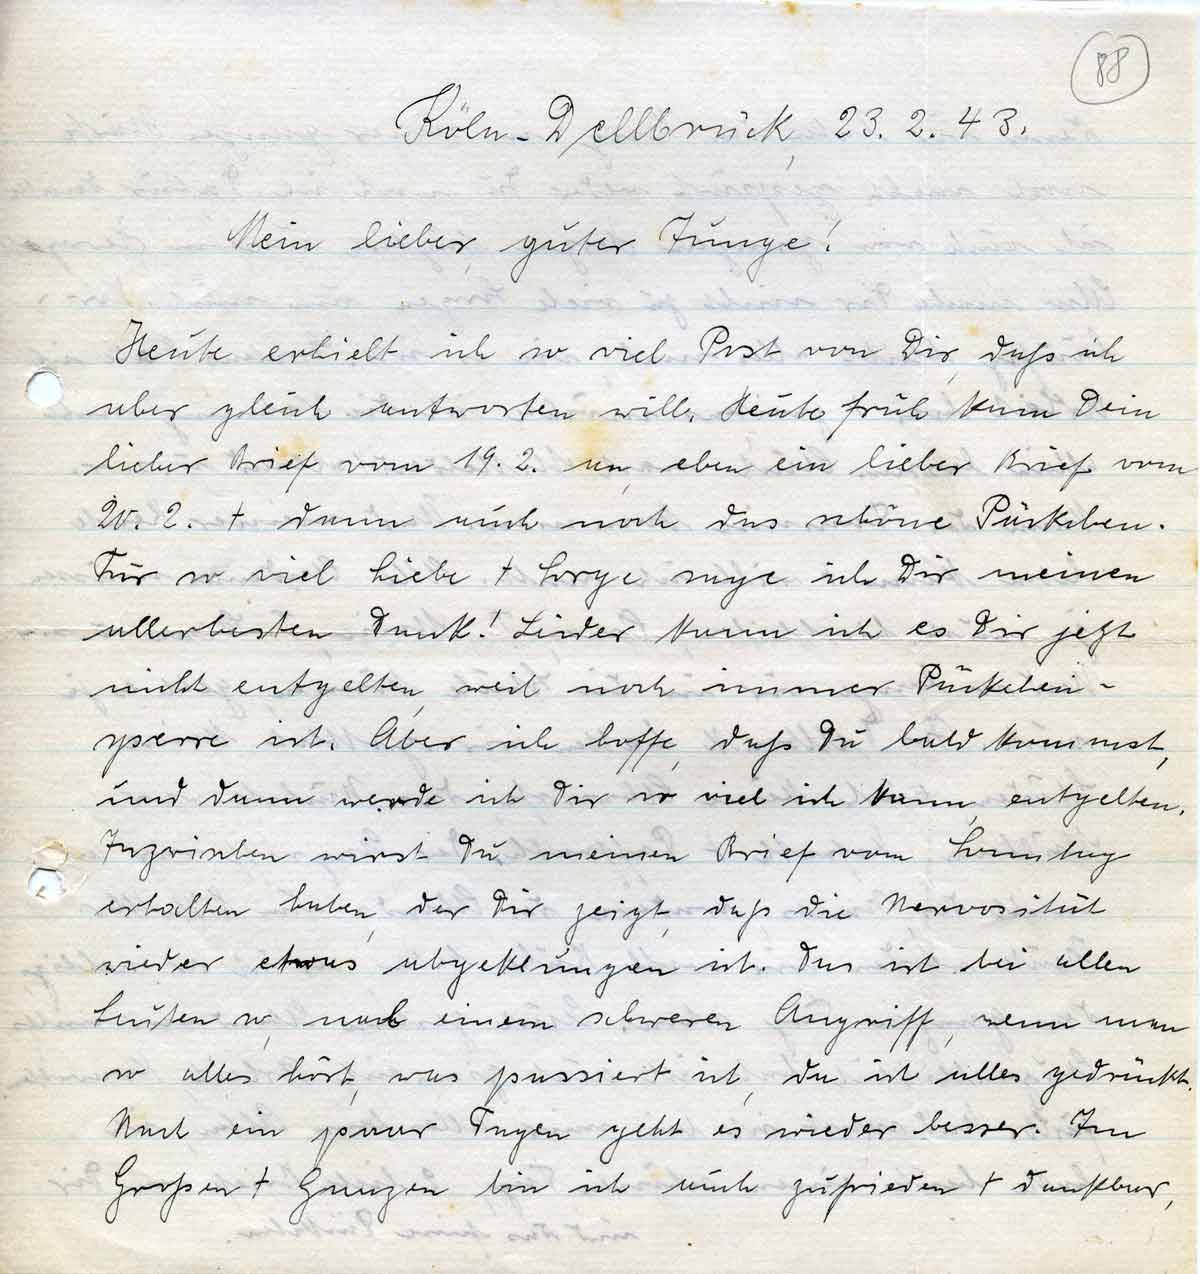 88
Köln-Dellbrück, 23.2.43.
Mein lieber, guter Junge!
Heute erhielt ich so viel Post von Dir, daß ich
aber gleich antworten will. Heute früh kam Dein
lieber Brief vom 19.2. an, eben ein lieber Brief vom
20.2. + dann auch noch das schöne Päckchen.
Für so viel Liebe + Sorge sage ich Dir meinen
allerbesten Dank! Leider kann ich es Dir jetzt
nicht entgelten, weil noch immer Päckchen-
sperre ist. Aber ich hoffe, daß Du bald kommst,
und dann werde ich Dir so viel ich kann, entgelten.
Inzwischen wirst Du meinen Brief vom Sonntag
erhalten haben, der Dir zeigt, daß die Nervosität
wieder etwas abgeklungen ist. Das ist bei allen
Leuten so, nach einem schweren Angriff, wenn man
so alles hört, was passiert ist, da ist alles gedrückt.
Nach ein paar Tagen geht es wieder besser. Im
Großen + Ganzen bin ich auch zufrieden + dankbar,